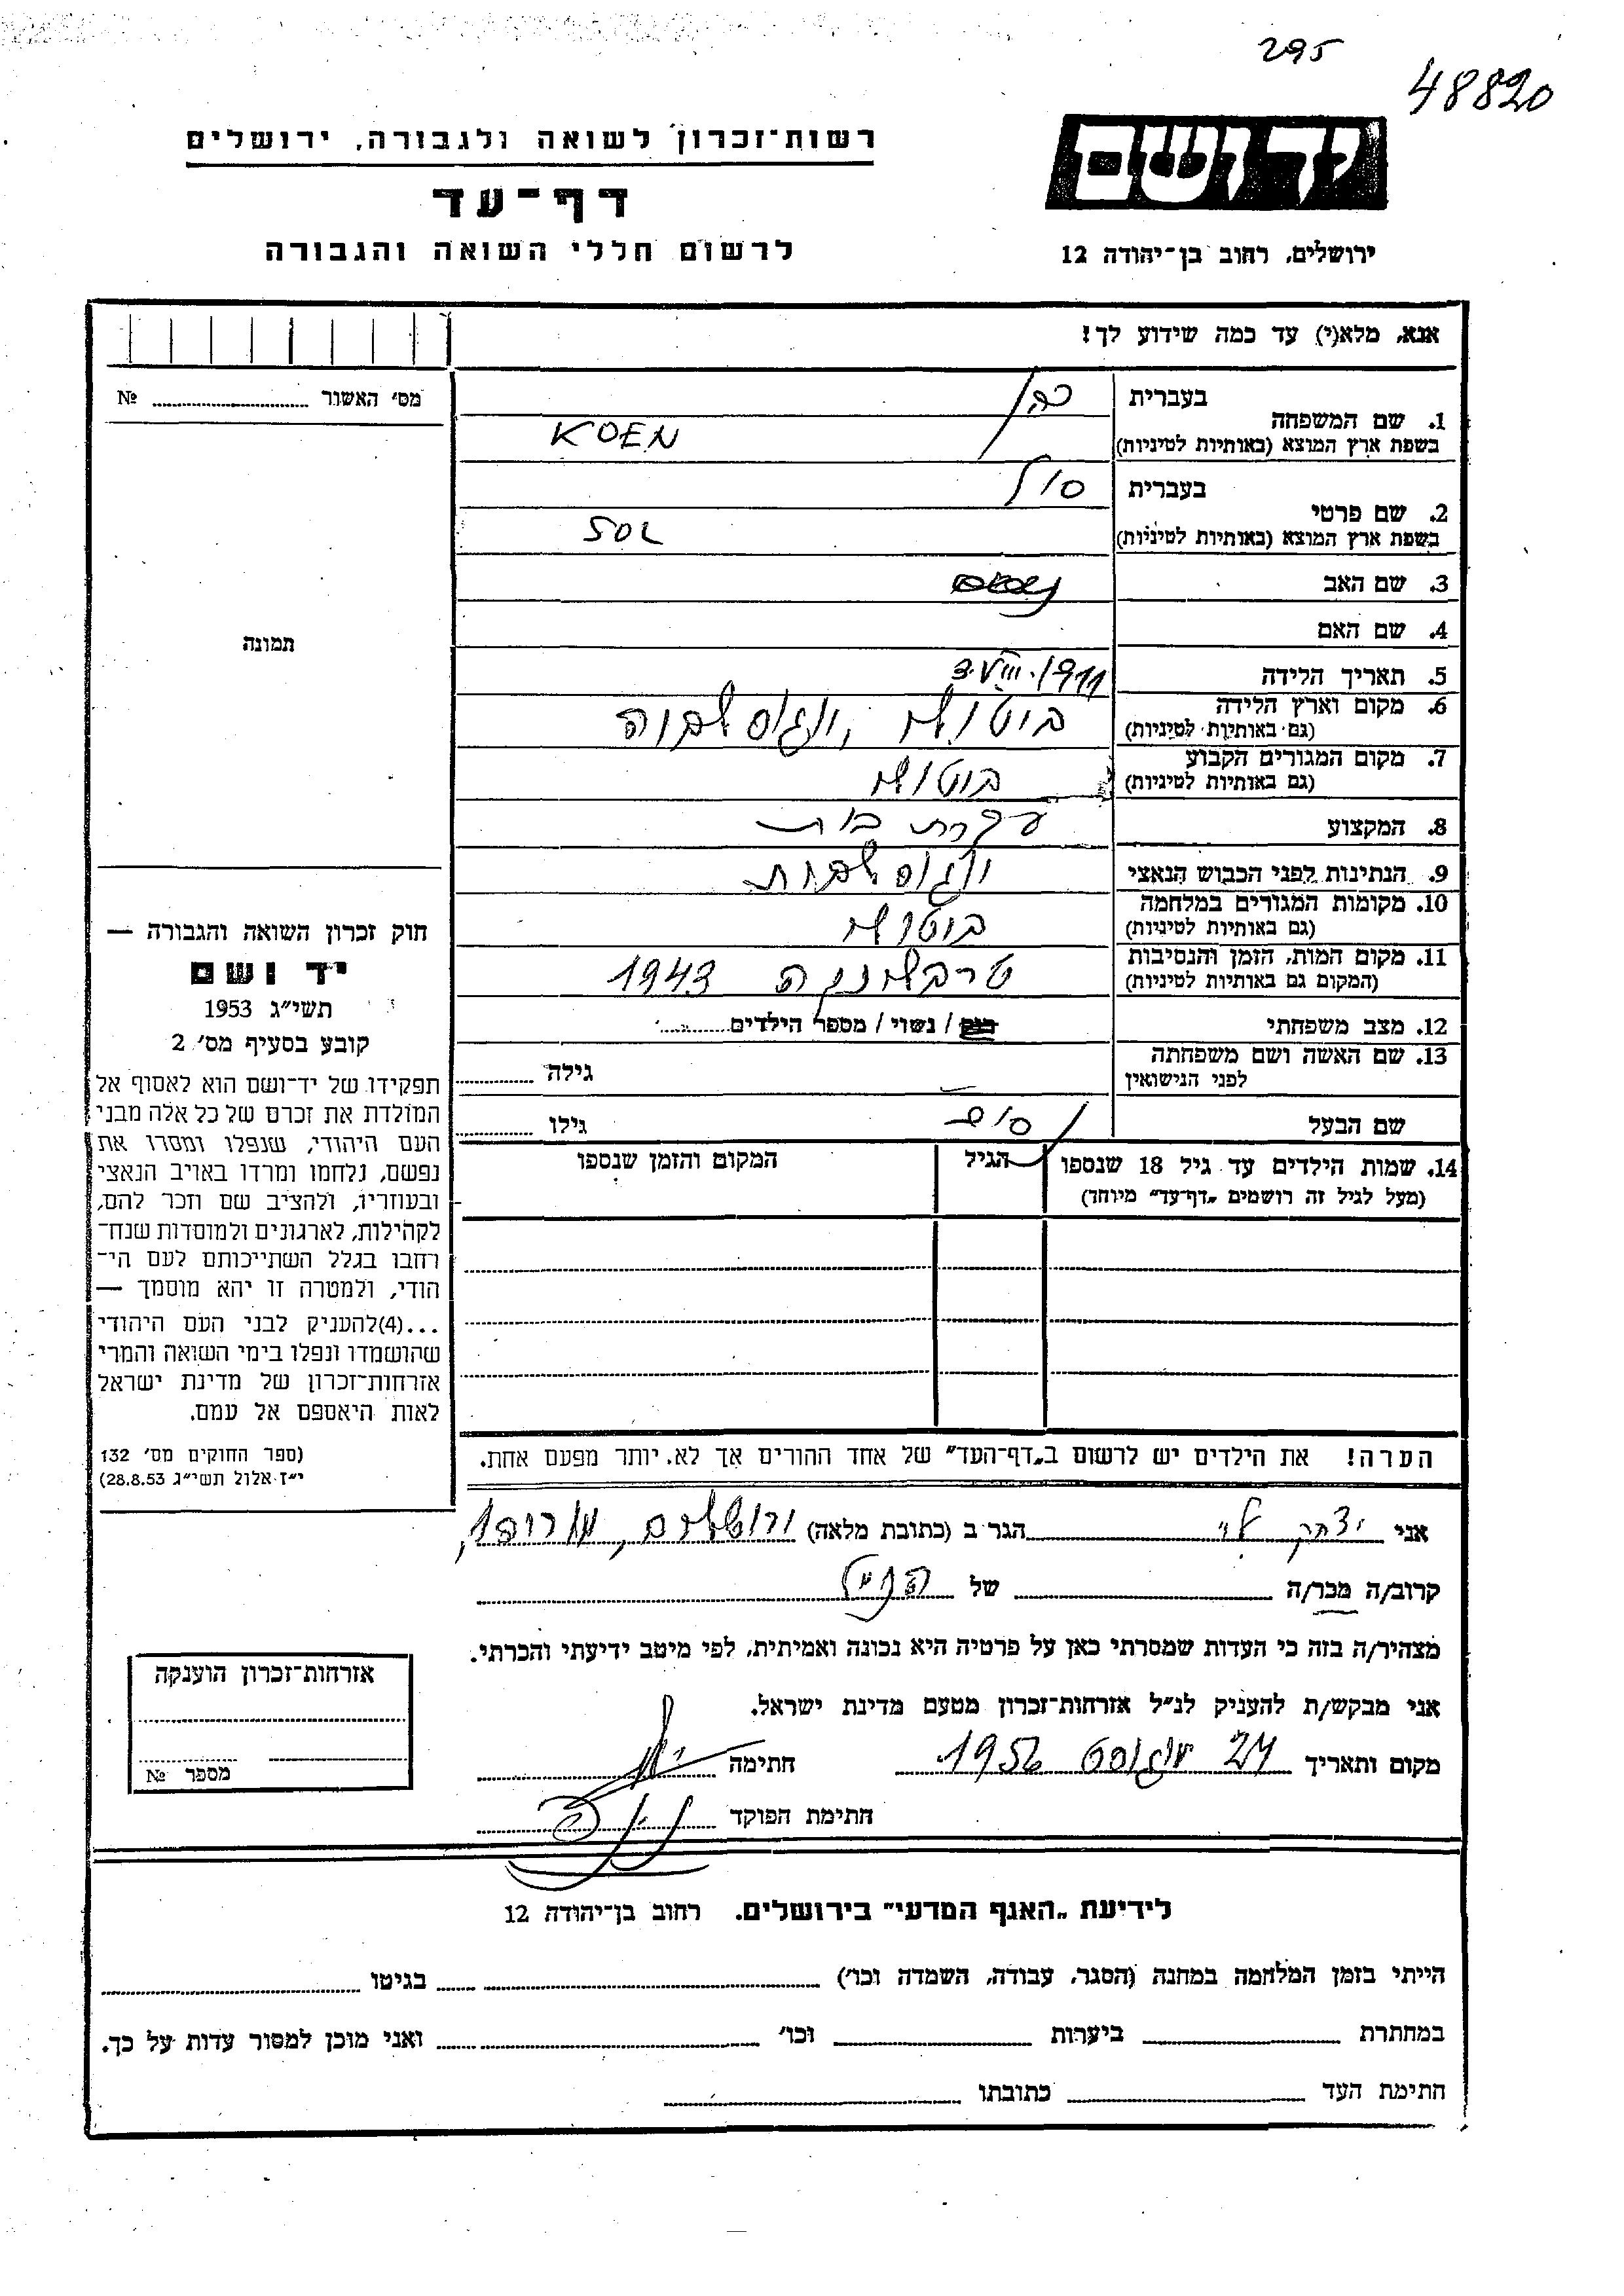 295
48820
יד ושם
רשות־זכרון לשואה ולגבורה, ירושלים
דף־עד
לרשום חללי השואה והגבורה
ירושלים, רחוב בן־יהודה 12
אנא, מלא(י) עד כמה שידוע לך!
מס׳ האשור № 
1. שם המשפחה
בעברית כהן
בשפת ארץ המוצא (באותיות לטיניות) KOEN
2. שם פרטי
בעברית סול
בשפת ארץ המוצא (באותיות לטיניות) SOL
3. שם האב
4. שם האם
5. תאריך הלידה 3.VIII.1911
6. מקום וארץ הלידה ביטולי, יוגוסלביה
(גם באותיות לטיניות)
7. מקום המגורים הקבוע ביטולי
(גם באותיות לטיניות)
8. המקצוע עקרת בית
9. הנתינות לפני הכבוש הנאצי יוגוסלבית
10. מקומות המגורים במלחמה ביטולי
(גם באותיות לטיניות)
11. מקום המות, הזמן והנסיבות טרבלינקה 1943
(המקום גם באותיות לטיניות)
12. מצב משפחתי רווק / נשוי / מספר הילדים
13. שם האשה ושם משפחתה
לפני הנישואין גילה
שם הבעל גילו
14. שמות הילדים עד גיל 18 שנספו
(מעל לגיל זה רושמים „דף־עד״ מיוחד)
הגיל
המקום והזמן שנספו
תמונה
חוק זכרון השואה והגבורה —
יד ושם
תשי״ג 1953
קובע בסעיף מס׳ 2
תפקידו של יד־ושם הוא לאסוף אל
המולדת את זכרם של כל אלה מבני
העם היהודי, שנפלו ומסרו את
נפשם, נלחמו ומרדו באויב הנאצי
ובעוזריו, ולהציב שם וזכר להם,
לקהילות, לארגונים ולמוסדות שנח־
רחבו בגלל השתייכותם לעם הי־
הודי, ולמטרה זו יהא מוסמך —
...(4)להעניק לבני העם היהודי
שהושמדו ונפלו בימי השואה והמרי
אזרחות־זכרון של מדינת ישראל
לאות היאספם אל עמם.
(ספר החוקים מס׳ 132
י״ז אלול תשי״ג 28.8.53)
הערה! את הילדים יש לרשום ב„דף־העד״ של אחד ההורים אך לא יותר מפעם אחת.
אני יצחק לוי הגר ב (כתובת מלאה) ירושלים,
קרוב/ה מכר/ה של הנ״ל
מצהיר/ה בזה כי העדות שמסרתי כאן על פרטיה היא נכונה ואמיתית, לפי מיטב ידיעתי והכרתי.
אני מבקש/ת להעניק לנ״ל אזרחות־זכרון מטעם מדינת ישראל.
מקום ותאריך 27 אוגוסט 1956 חתימה
חתימת הפוקד
אזרחות־זכרון הוענקה
מספר №
לידיעת „האגף המדעי״ בירושלים. רחוב בן־יהודה 12
הייתי בזמן המלחמה במחנה (הסגר, עבודה, השמדה וכו׳) בגיטו
במחתרת ביערות וכו׳ ואני מוכן למסור עדות על כך.
חתימת העד כתובתו